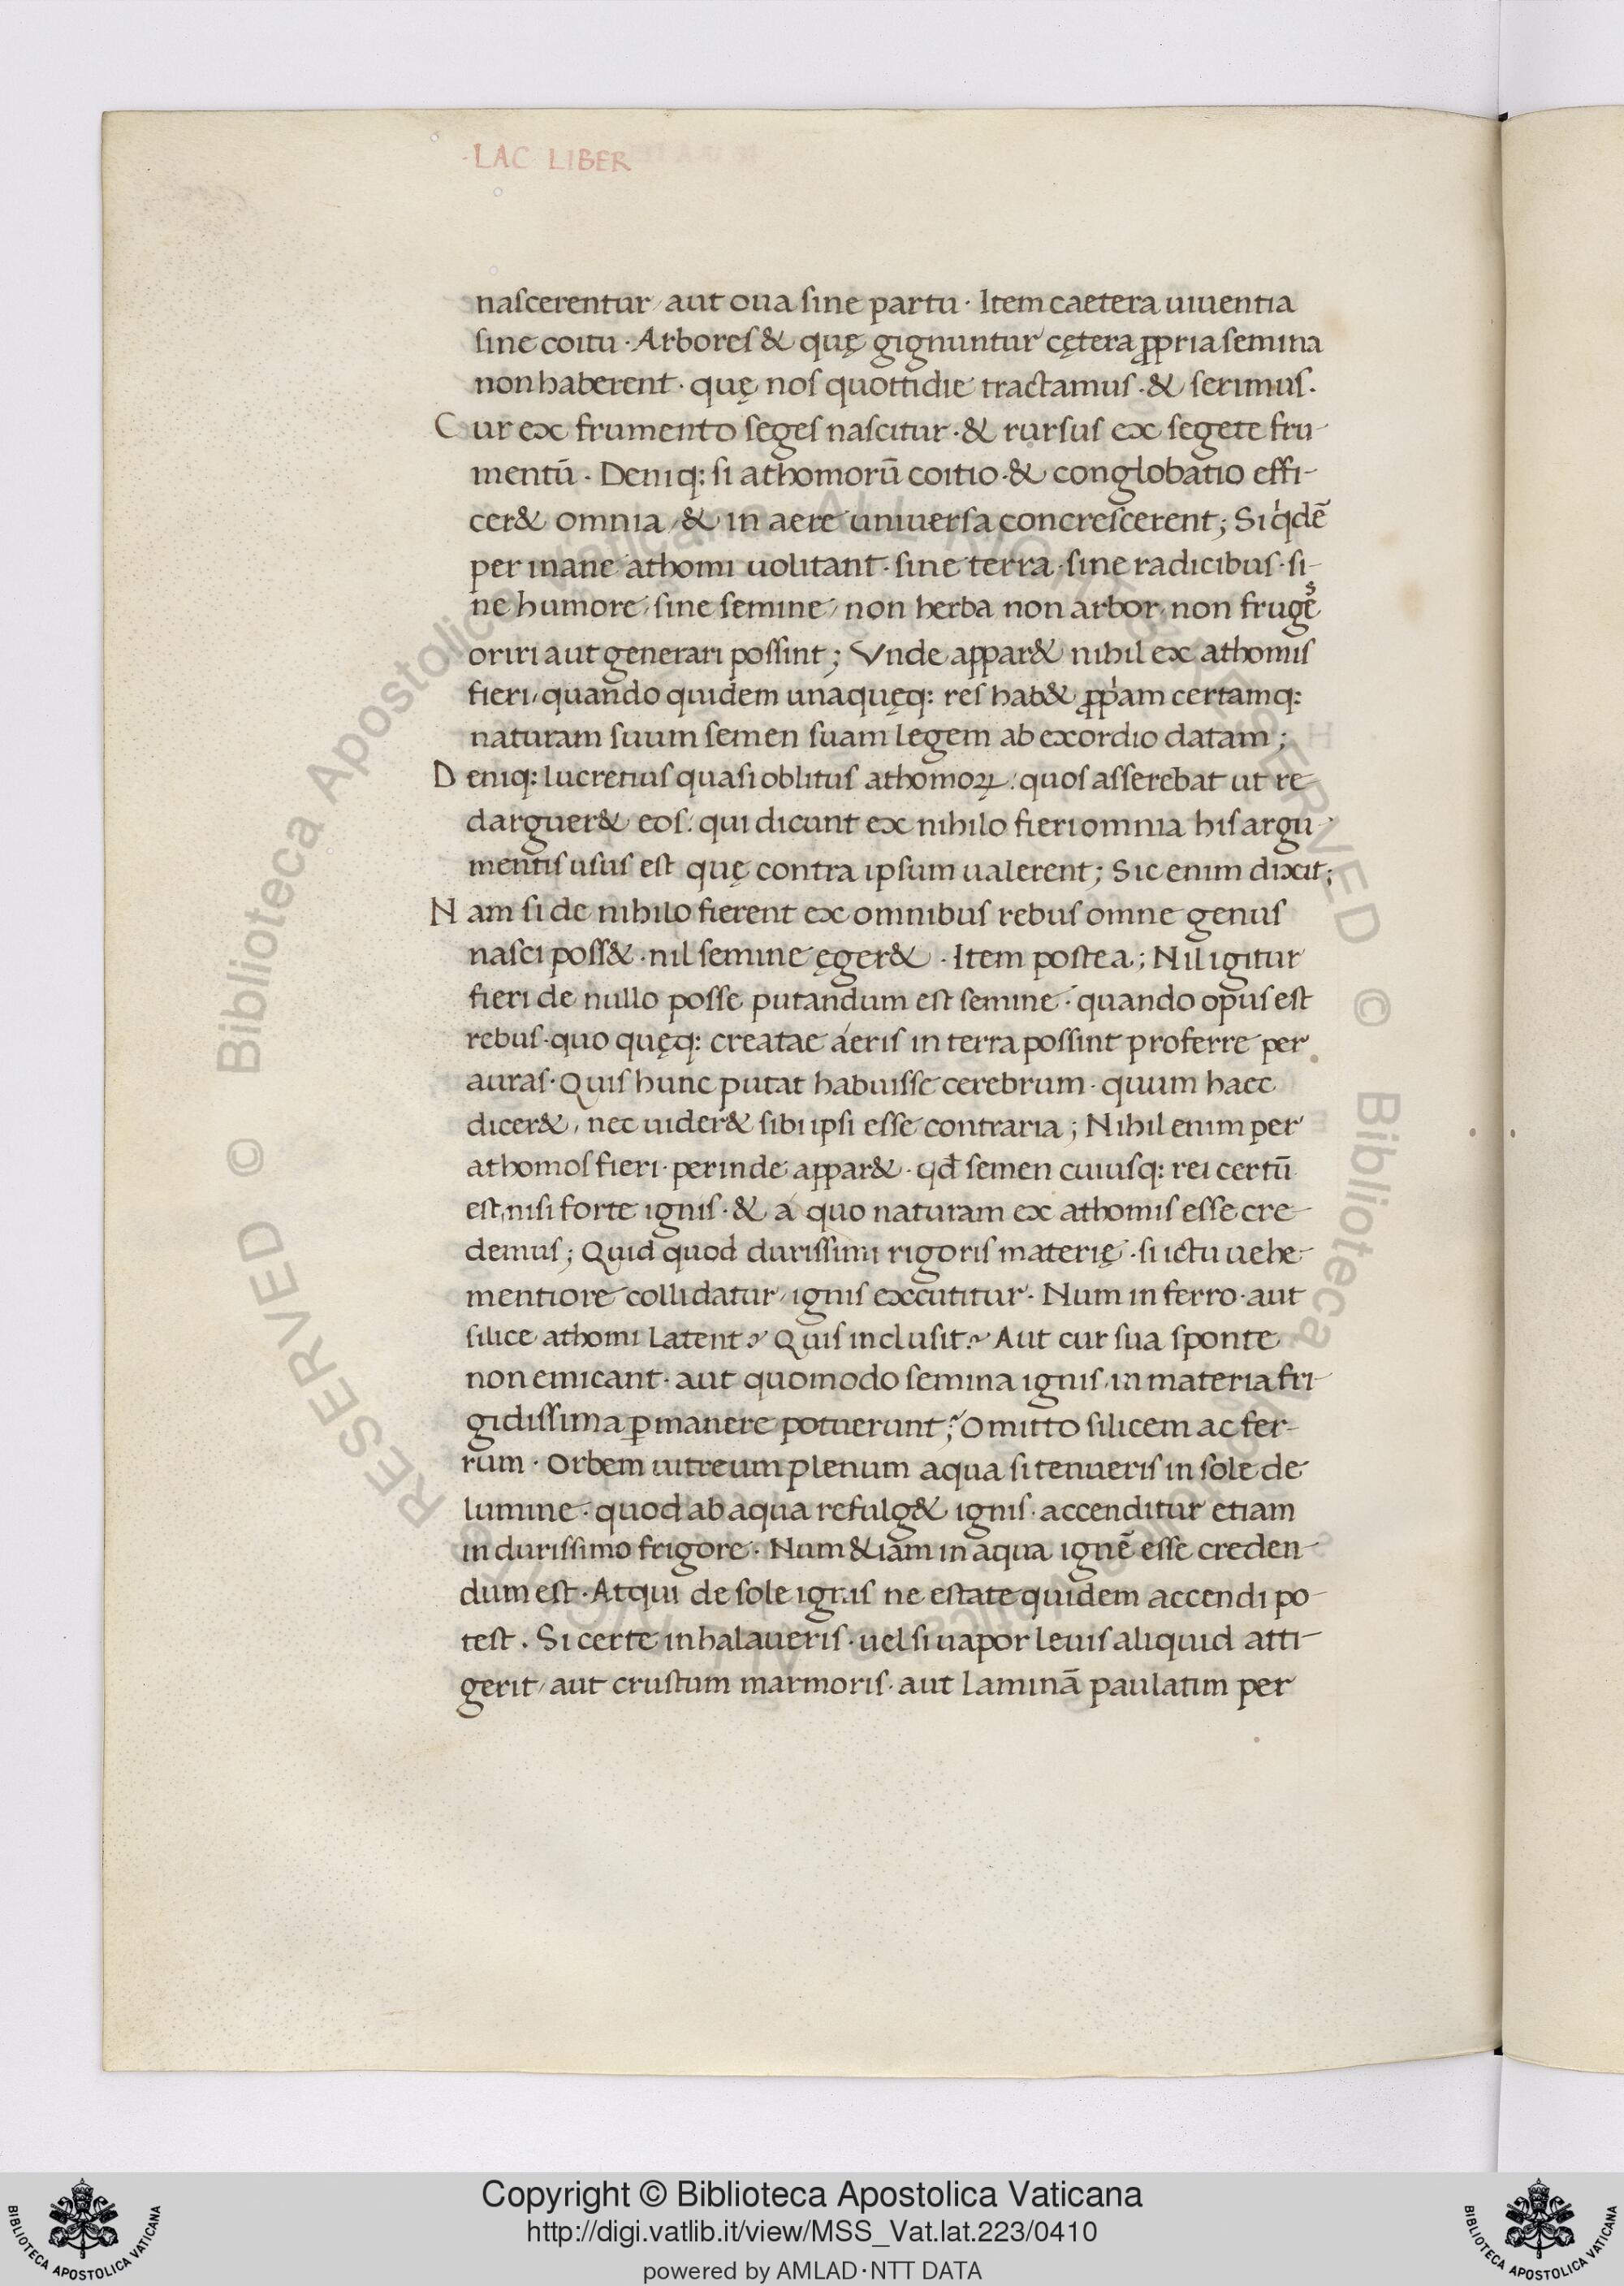 ·LAC LIBER
nascerentur, aut oua sine partu · Item caetera uiuentia
sine coitu · Arbores & quę gignuntur cętera ꝓpria semina
non haberent · quę nos quottidie tractamus · & serimus ·
Cur ex frumento seges nascitur · & rursus ex segete fru-
mentū · Deniq: si athomorū coitio · & conglobatio effi-
cer& omnia, & in aere uniuersa concrescerent; Si qͥdē
per inane athomi uolitant · sine terra · sine radicibus · si-
ne humore, sine semine, non herba non arbor, non frugēs
oriri aut generari possint; Vnde appar& nihil ex athomis
fieri, quando quidem unaquęq: res hab& ꝓpͥam certamq:
naturam suum semen suam legem ab exordio datam;
Deniq: lucretius quasi oblitus athomoꝝ · quos asserebat ut re
darguer& eos · qui dicunt ex nihilo fieri omnia his argu-
mentis usus est quę contra ipsum ualerent; Sic enim dixit;
Nam si de nihilo fierent ex omnibus rebus omne genus
nasci poss& · nil semine ęger& · Item postea; Nil igitur
fieri de nullo posse putandum est semine · quando opus est
rebus · quo quęq: creatae áeris in terra possint proferre per
auras · Quis hunc putat habuisse cerebrum · quum haec
dicer&, nec uider& sibi ipsi esse contraria; Nihil enim per
athomos fieri · perinde appar& · qđ semen cuiusq: rei certū
est, nisi forte ignis · & á quo naturam ex athomis esse cre-
demus; Quid quod durissimi rigoris materię · si ictu uehe-
mentiore collidatur, ignis excutitur · Num in ferro · aut
silice athomi latent? Quis inclusit? Aut cur sua sponte
non emicant · aut quomodo semina ignis · in materia fri-
gidissima ꝑmanere potuerunt;? Omitto silicem ac fer-
rum · Orbem uitreum plenum aqua si tenueris in sole de
lumine · quod ab aqua refulg& ignis · accenditur etiam
in durissimo frigore · Num &iam in aqua ignē esse creden-
dum est · Atqui de sole ignis ne estate quidem accendi po-
test . Si certe inhalaueris · uel si uapor leuis aliquid atti-
gerit, aut crustum marmoris · aut laminā paulatim per
© Biblioteca Apostolica Vaticana ALL RIGHTS RESERVED
Copyright © Biblioteca Apostolica Vaticana
http://digi.vatlib.it/view/MSS_Vat.lat.223/0410
powered by AMLAD·NTT DATA
BIBLIOTECA APOSTOLICA VATICANA
BIBLIOTECA APOSTOLICA VATICANA